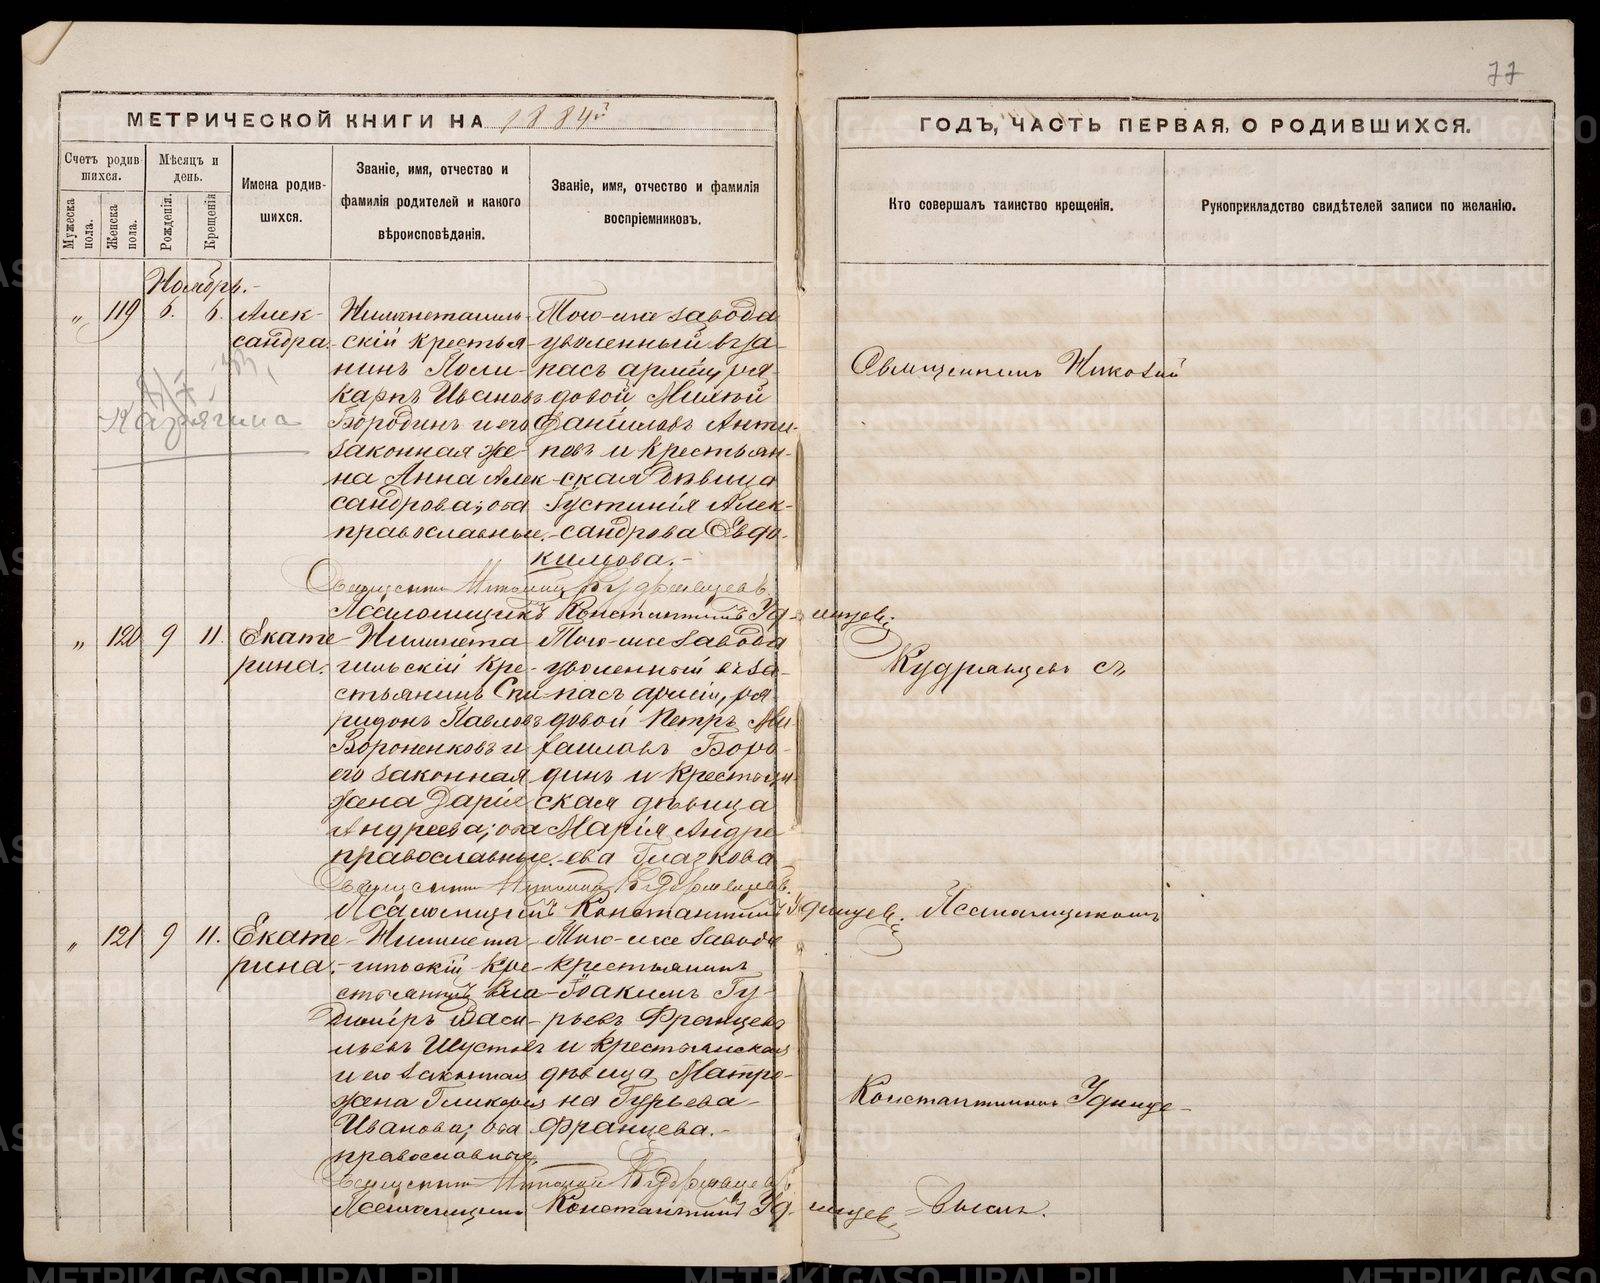 77
МЕТРИЧЕСКОЙ КНИГИ НА 1884й
ГОДЪ, ЧАСТЬ ПЕРВАЯ, О РОДИВШИХСЯ.
Счетъ родив
шихся.
Мужеска
пола.
Женска
пола.
Мѣсяцъ и
день.
Рожденія.
Крещенія
Имена родив-
шихся.
Званіе, имя, отчество и
фамилія родителей и какого
вѣроисповѣданія.
Званіе, имя, отчество и фамилія
воспріемниковъ.
Кто совершалъ таинство крещенія.
Рукоприкладство свидѣтелей записи по желанію.
Ноябрь.-
„ 119 6. 6. Алек-
сандра.
Нижнетагиль-
скій крестья-
нинъ Поли-
карпъ Ивановъ
Бородинъ и его
законная же-
на Анна Алек-
сандрова; оба
православные.
Того-же завода
уволенный въ за-
пасъ арміи, ря-
довой
Даниловъ Анти-
повъ и крестьян-
ская дѣвица
Іустинія Алек-
сандрова Евдо-
кимова.-
Карягина
Священникъ Николай
Священникъ Николай Кудрявцевъ
Псаломщикъ Константинъ Удинцевъ
„ 120 9 11. Екате-
рина.
Нижнета-
гильскій кре-
стьянинъ Спи-
ридонъ Павловъ
Вороненковъ и
его законная
жена Дарія
Андреева; оба
православные.
Того-же завода
уволенный въ за-
пасъ арміи, ря-
довой Петръ Ми-
хаиловъ Боро-
динъ и крестьян-
ская дѣвица
Марія Андре-
ева Глазкова
Кудрявцевъ съ
Священникъ Николай Кудрявцевъ.
Псаломщикъ Константинъ Удинцевъ.
Псаломщикомъ
„ 121 9 11. Екате-
рина.-
Нижнета-
гильскій кре-
стьянинъ Вла-
диміръ Васи-
льевъ Шустовъ
и его законная
жена Гликерія
Иванова; оба
православные.
Того-же завода
крестьянинъ
Іоакимъ Гу-
рьевъ Францевъ
и крестьянская
дѣвица Матре-
на Гурьева
Францева.-
Константиномъ Удинце-
Священникъ Николай Кудрявцевъ
Псаломщикъ Константинъ Удинцевъ
= вымъ.
METRIKI.GASO-URAL.RU